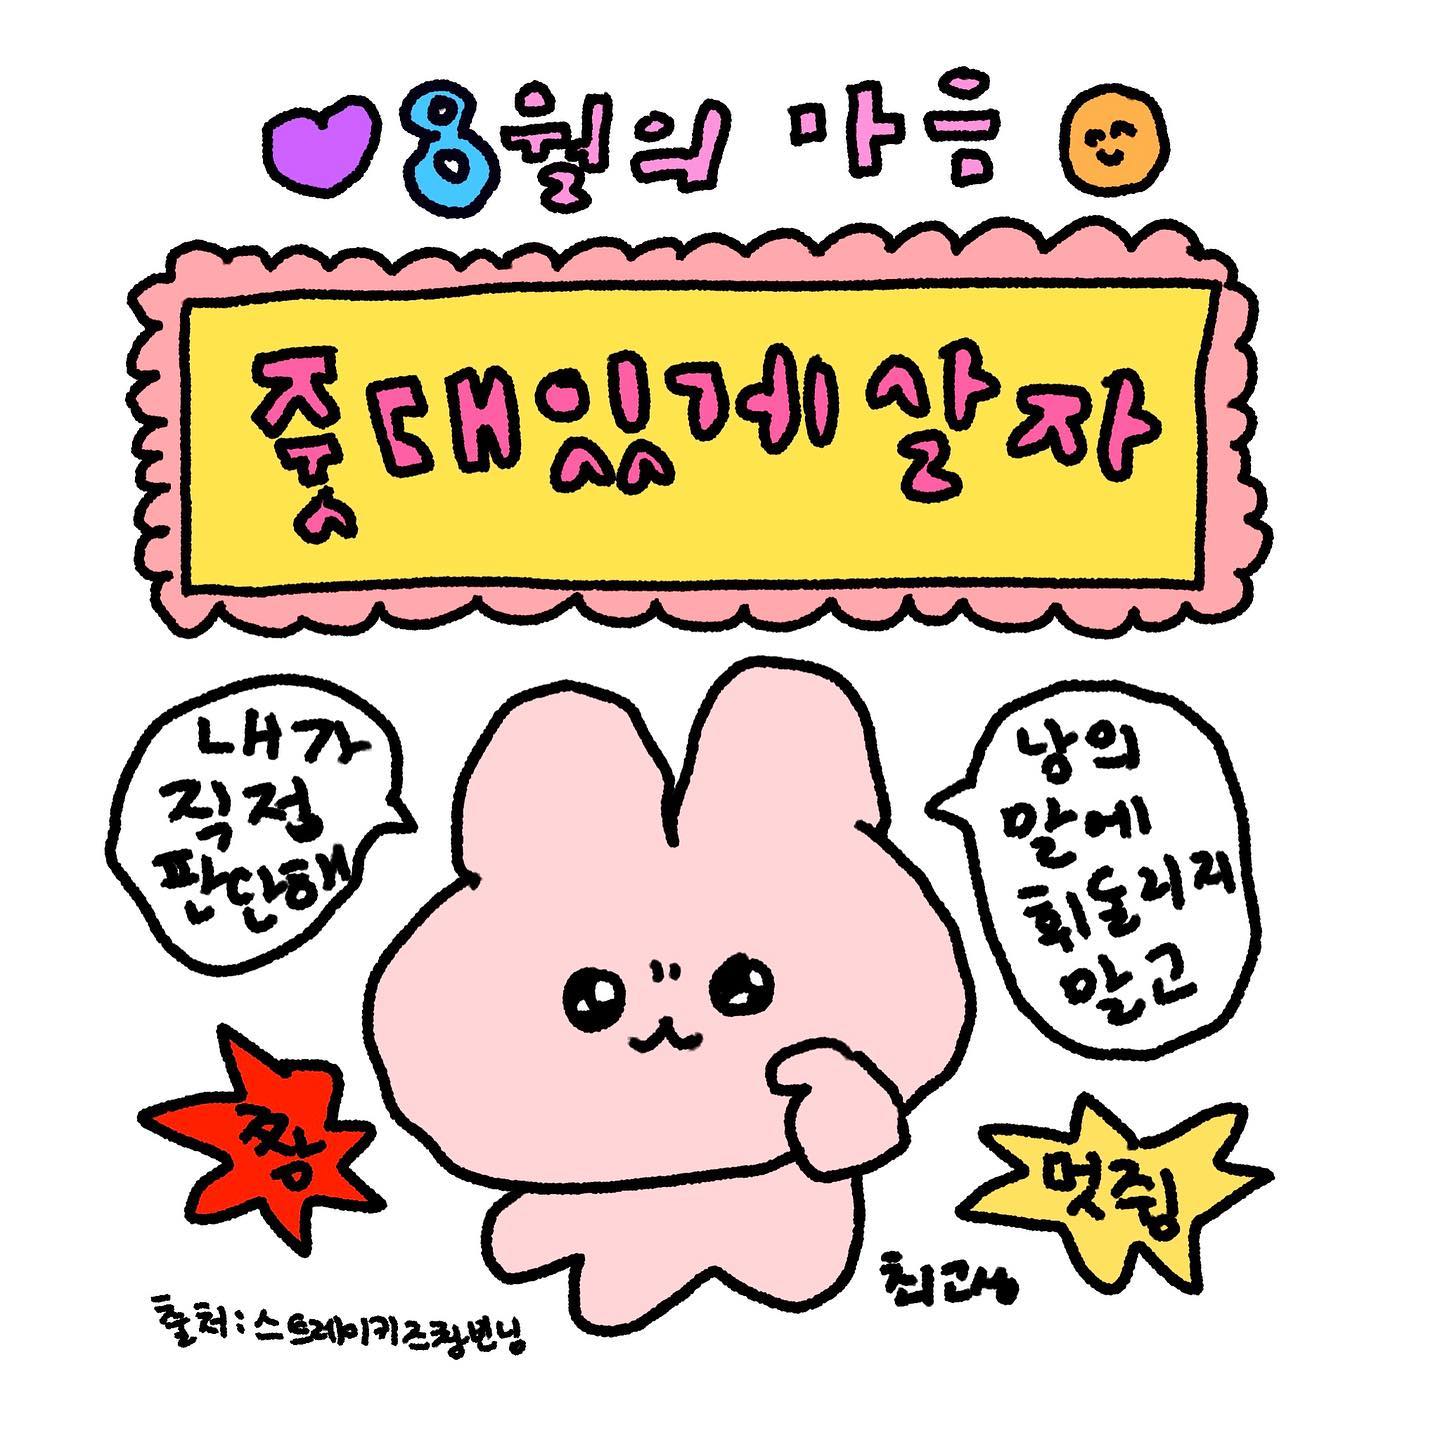 8월의 마음
줏대있게살자
내가
직접
판단해
남의
말에
휘둘리지
말고
짱
멋쥠
최고심
출처:스트레이키즈창빈님